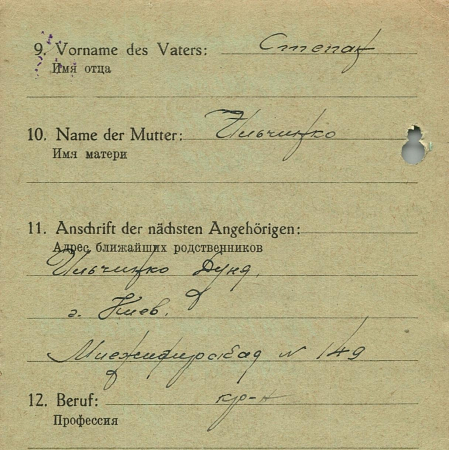 9. Vorname des Vaters: Степан
Имя отца
10. Name der Mutter: Ильченко
Имя матери
11. Anschrift der nächsten Angehörigen:
Адрес ближайших родственников
Ильченко
г. Киев.
N 149
12. Beruf: кр-н
Профессия